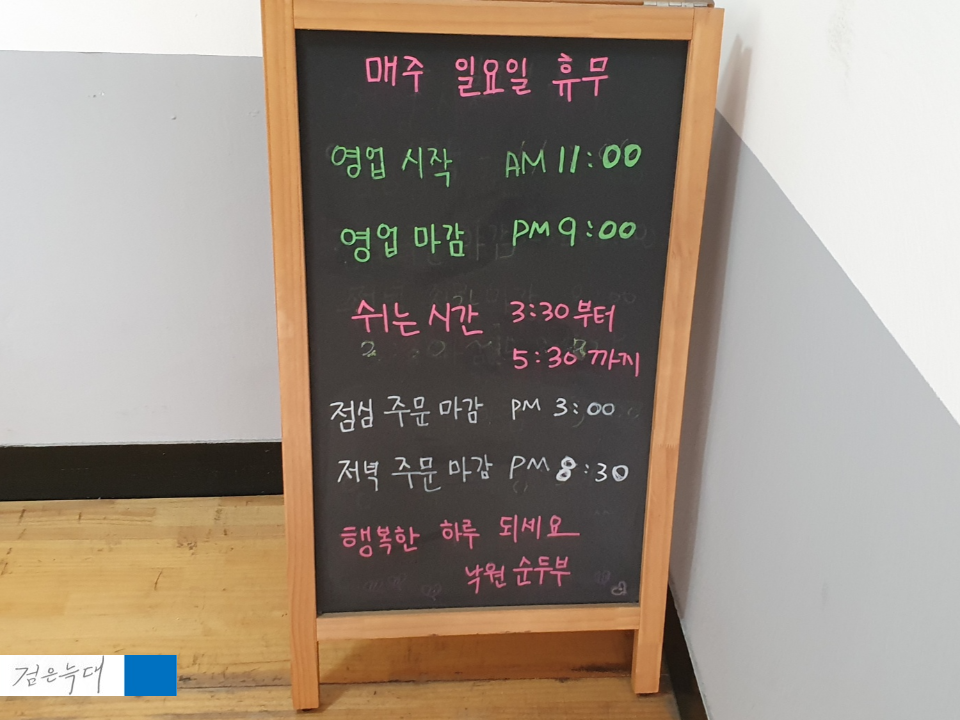 매주 일요일 휴무
영업 시작 AM 11:00
영업 마감 PM 9:00
쉬는 시간 3:30부터
5:30까지
점심 주문 마감 PM 3:00
저녁 주문 마감 PM 8:30
행복한 하루 되세요
낙원 순두부
검은늑대